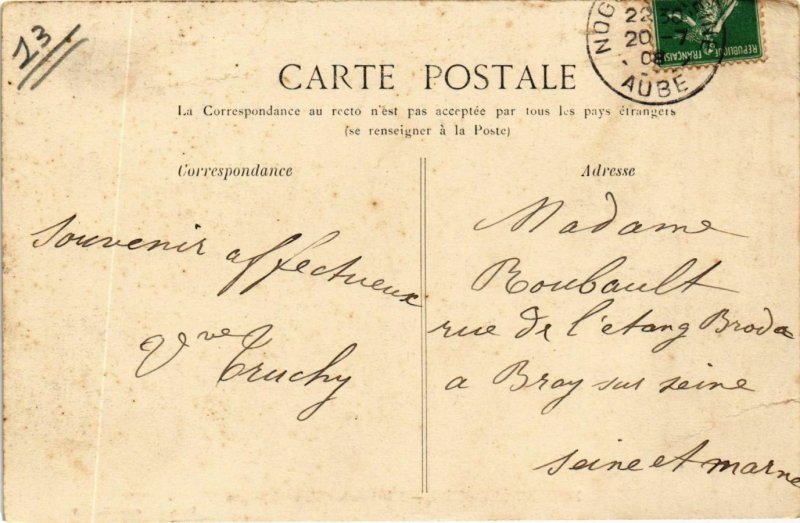 23
NOG
22
20 - 7
08
AUBE
RÉPUBLIQUE FRANÇAISE
CARTE POSTALE
La Correspondance au recto n'est pas acceptée par tous les pays étrangers
(se renseigner à la Poste)
Correspondance
Adresse
souvenir affectueux
Vve Truchy
Madame
Roubault
rue de l'etang Broda
a Bray sur seine
seine et marne